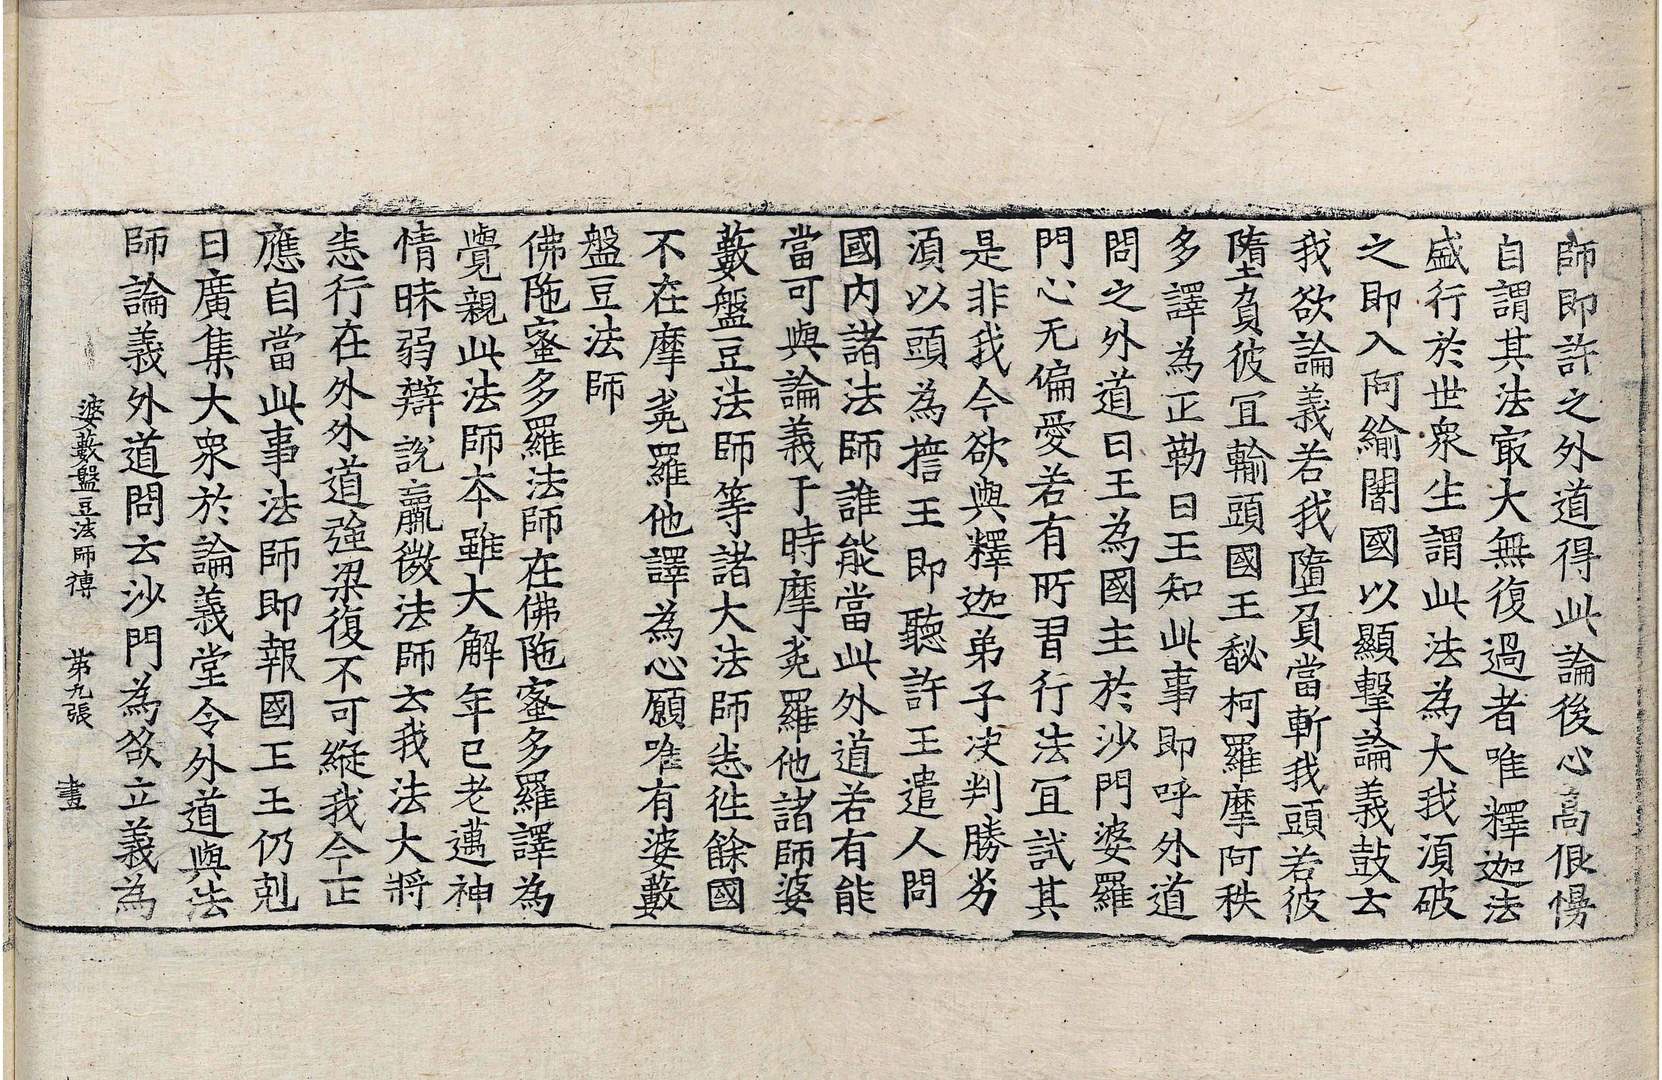 師即許之外道得此論後心高佷慢
自謂其法㝡大無復過者唯釋迦法
盛行於世衆生謂此法為大我湏破
之即入阿緰闍國以顯擊論義鼓云
我欲論義若我墮負當斬我頭若彼
墮負彼冝輸頭國王馝柯羅摩阿秩
多譯為正勒日王知此事即呼外道
問之外道曰王為國主於沙門婆羅
門心无偏愛若有所習行法冝試其
是非我今欲與釋迦弟子决判勝劣
湏以頭為擔王即聽許王遣人問
國内諸法師誰能當此外道若有能
當可與論義于時摩㝹羅他諸師婆
藪盤豆法師等諸大法師悉徃餘國
不在摩㝹羅他譯為心願唯有婆藪
盤豆法師
佛陁蜜多羅法師在佛陁蜜多羅譯為
覺親此法師本雖大解年已老邁神
情昧弱辯說羸微法師云我法大將
悉行在外外道強梁復不可縱我今正
應自當此事法師即報國王王仍剋
日廣集大衆於論義堂令外道與法
師論義外道問云沙門為欲立義為
婆藪盤豆法師傳　第九張　畫